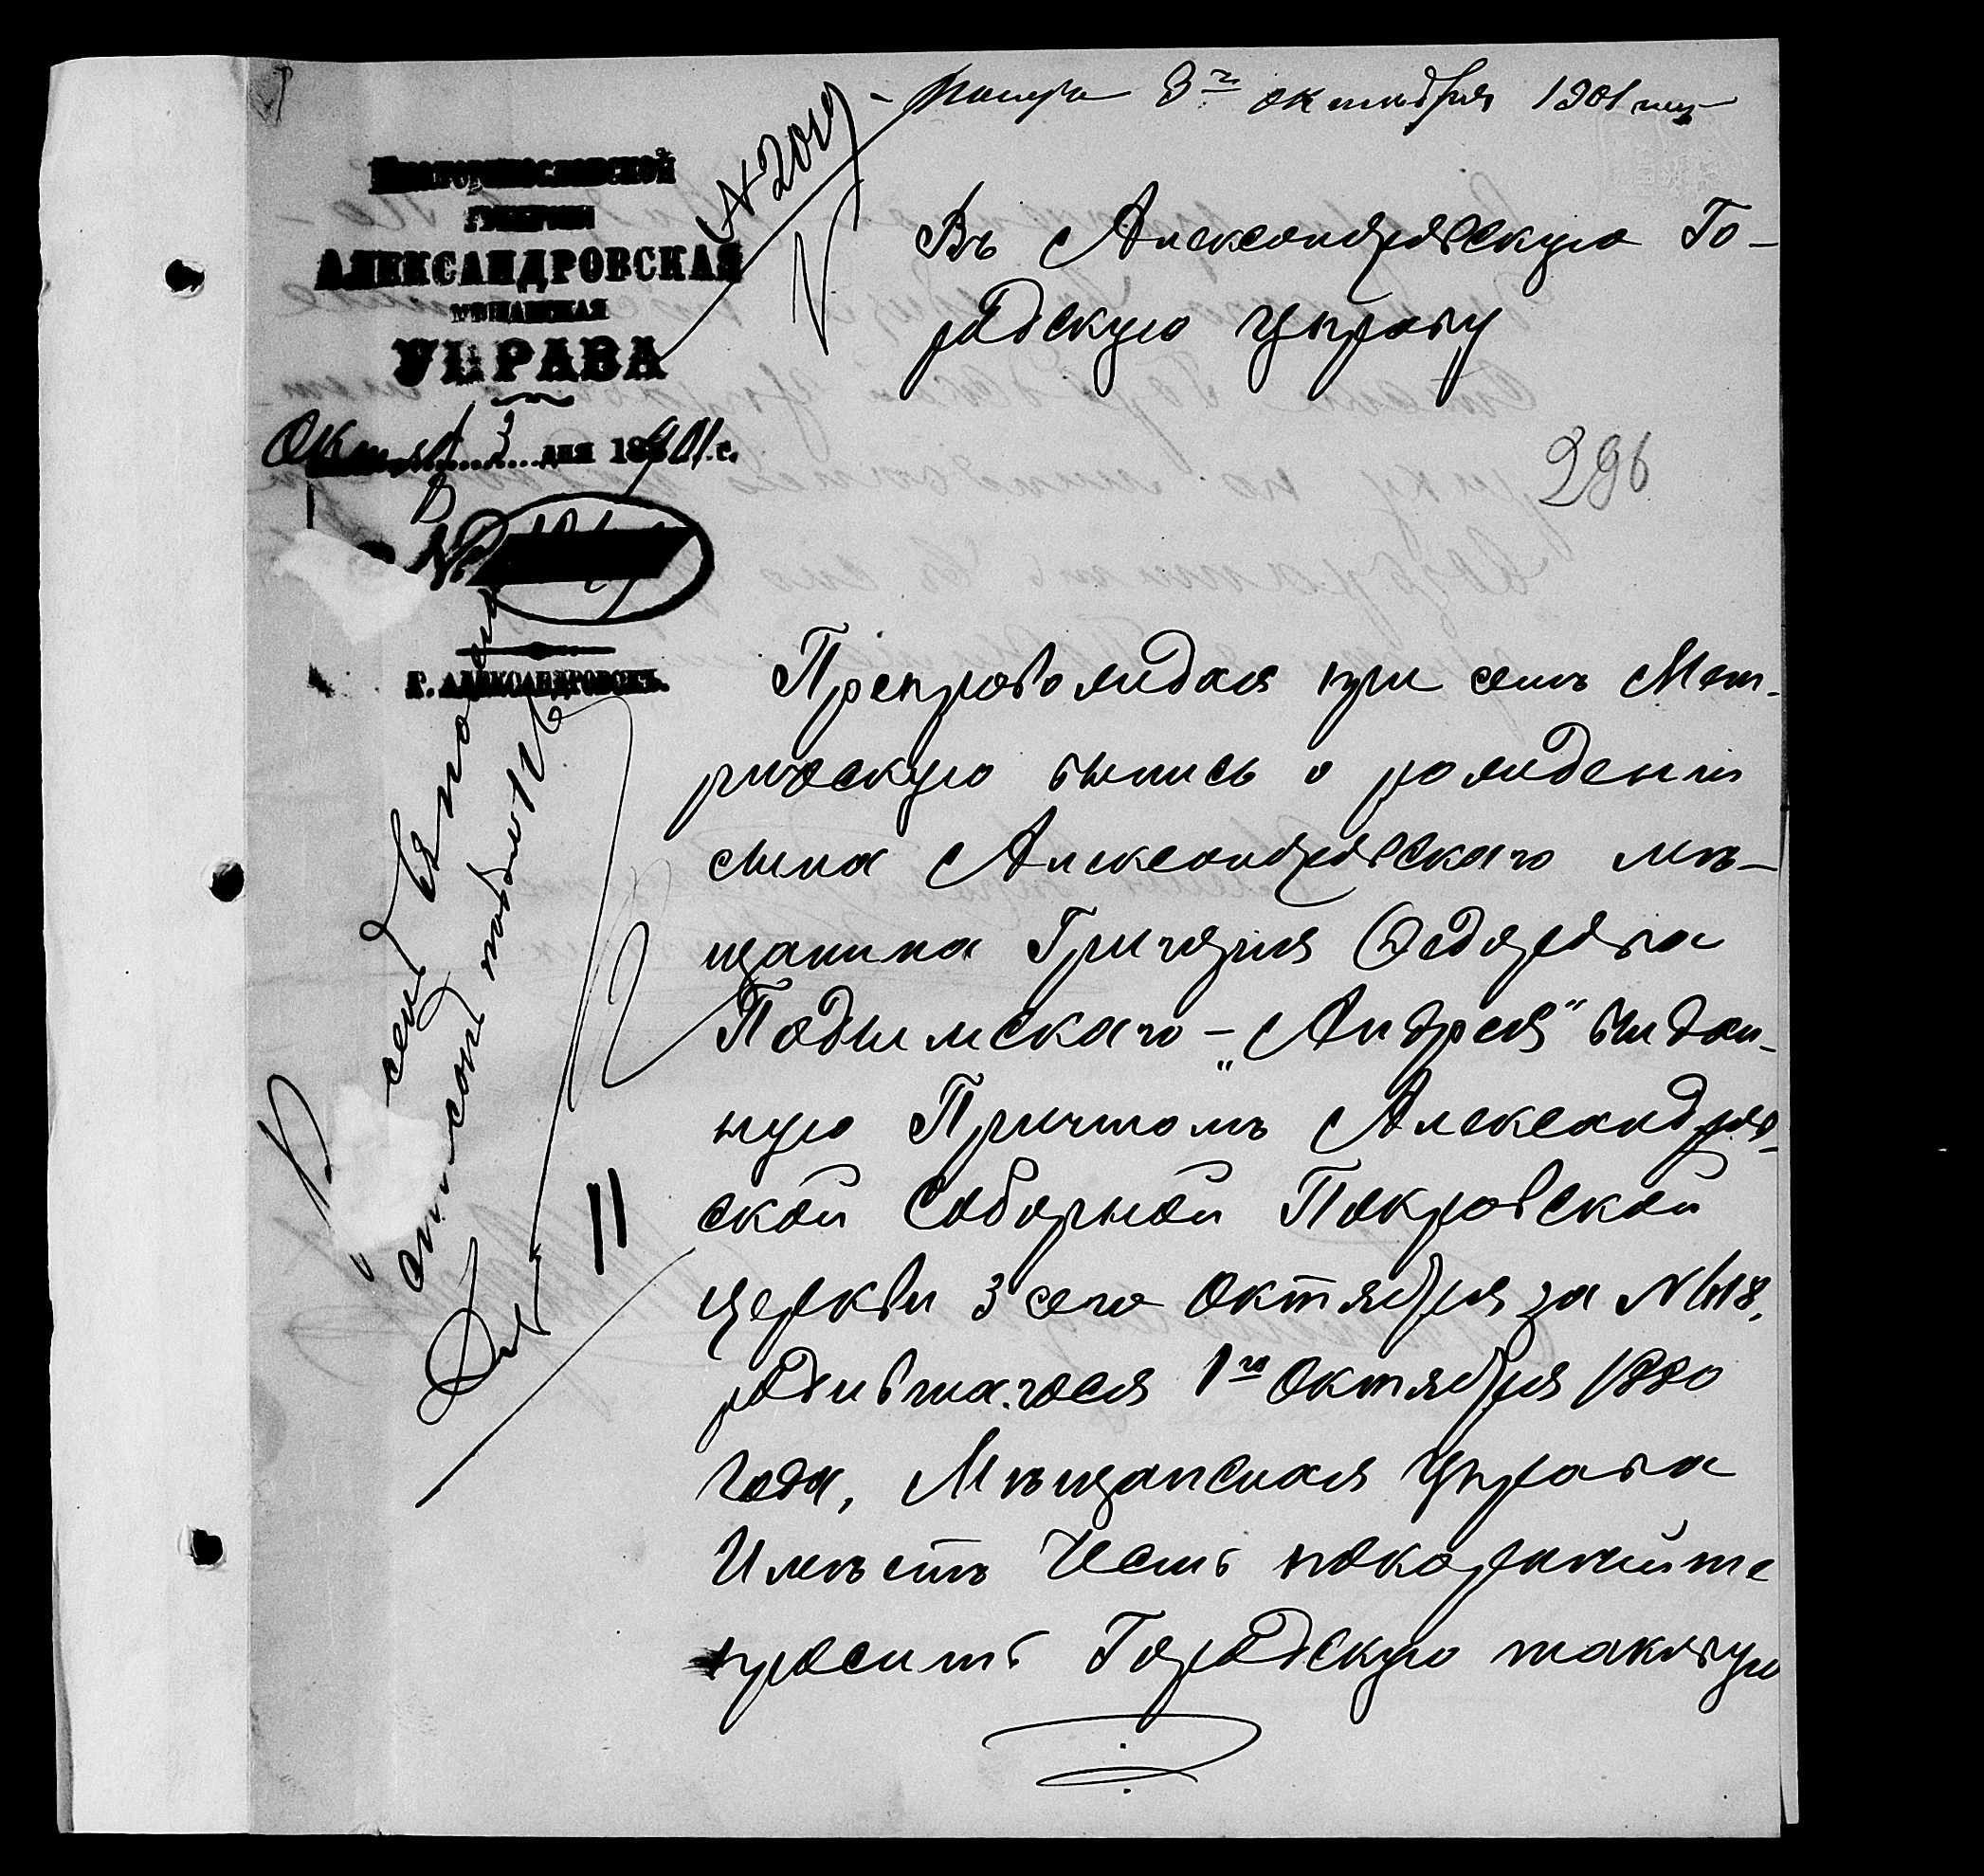 3го октября 1901
№ 2019
Екатеринославской
губернии
АЛЕКСАНДРОВСКАЯ
МѢЩАНСКАЯ
УПРАВА
Окт 3 дня 1901 г.
№
Г. АЛЕКСАНДРОВСКЪ.
Въ Александровскую Го-
родскую Управу
296
Препровождая при семъ Мет-
рическую выпись о рожденіи
сына Александровскаго мѣ-
щанина Григорія Ѳедорова
Подымскаго – „Андрея" выдан-
ную Причтомъ Александров-
ской Соборной Покровской
церкви 3 сего Октября за № 418,
родившагося 1го Октября 1880
года, Мѣщанская Управа
Имѣетъ Честь покорнѣйше
просить Городскую таковую